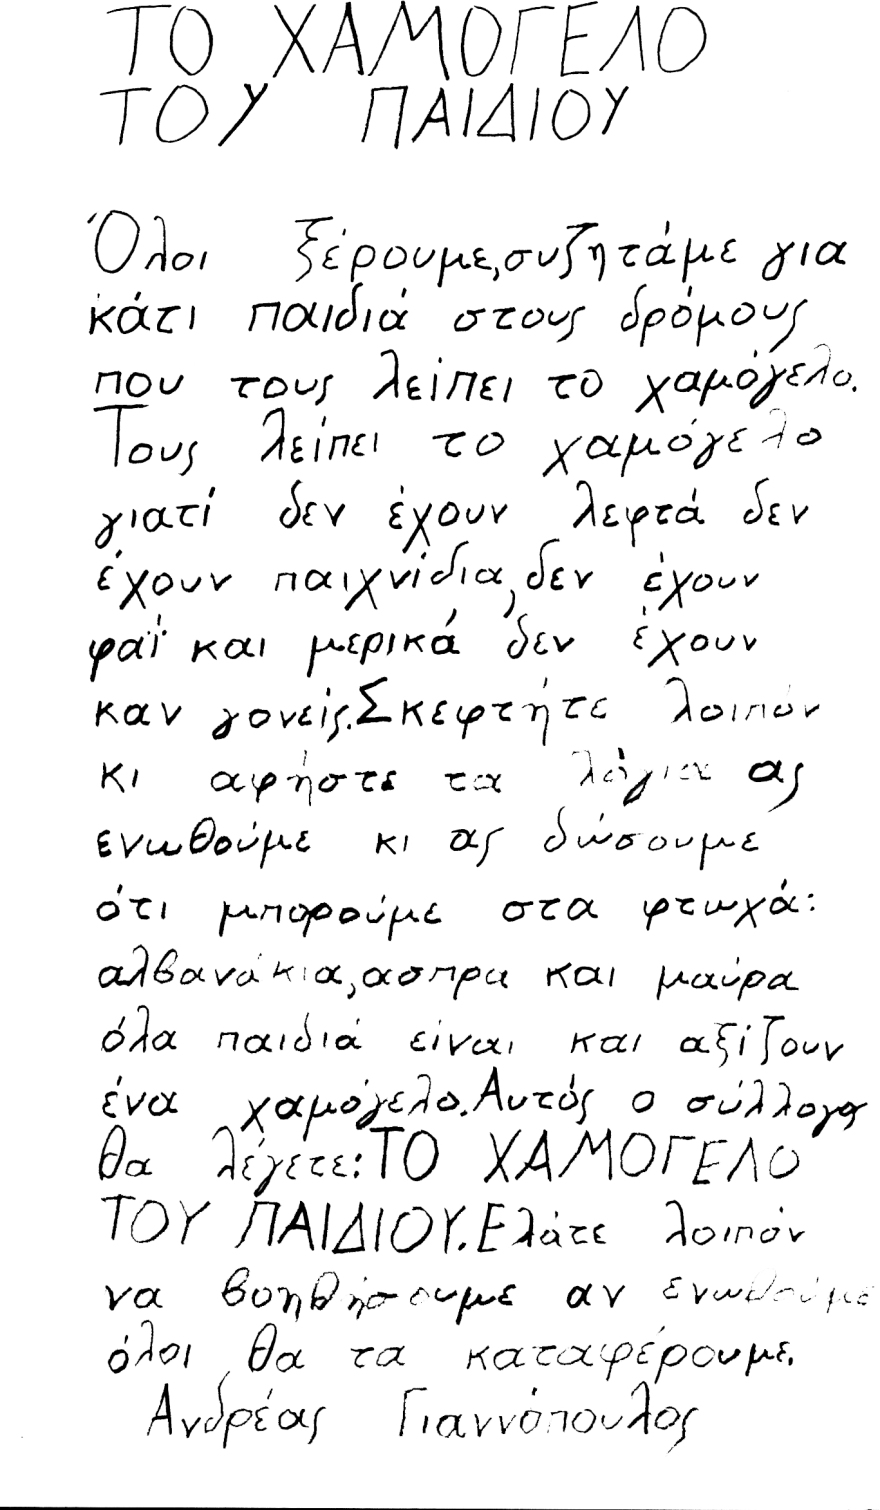 ΤΟ ΧΑΜΟΓΕΛΟ
ΤΟΥ ΠΑΙΔΙΟΥ
Όλοι ξέρουμε,συζητάμε για
κάτι παιδιά στους δρόμους
που τους λείπει το χαμόγελο.
Τους λείπει το χαμόγελο
γιατί δεν έχουν λεφτά δεν
έχουν παιχνίδια,δεν έχουν
φαϊ και μερικά δεν έχουν
καν γονείς.Σκεφτήτε λοιπόν
κι αφήστε τα λόγια ας
ενωθούμε κι ας δώσουμε
ότι μπορούμε στα φτωχά:
αλβανάκια,ασπρα και μαύρα
όλα παιδιά είναι και αξίζουν
ένα χαμόγελο.Αυτός ο σύλλογος
θα λέγετε:ΤΟ ΧΑΜΟΓΕΛΟ
ΤΟΥ ΠΑΙΔΙΟΥ.Ελάτε λοιπόν
να βοηθήσουμε αν ενωθούμε
όλοι θα τα καταφέρουμε.
Ανδρέας Γιαννόπουλος